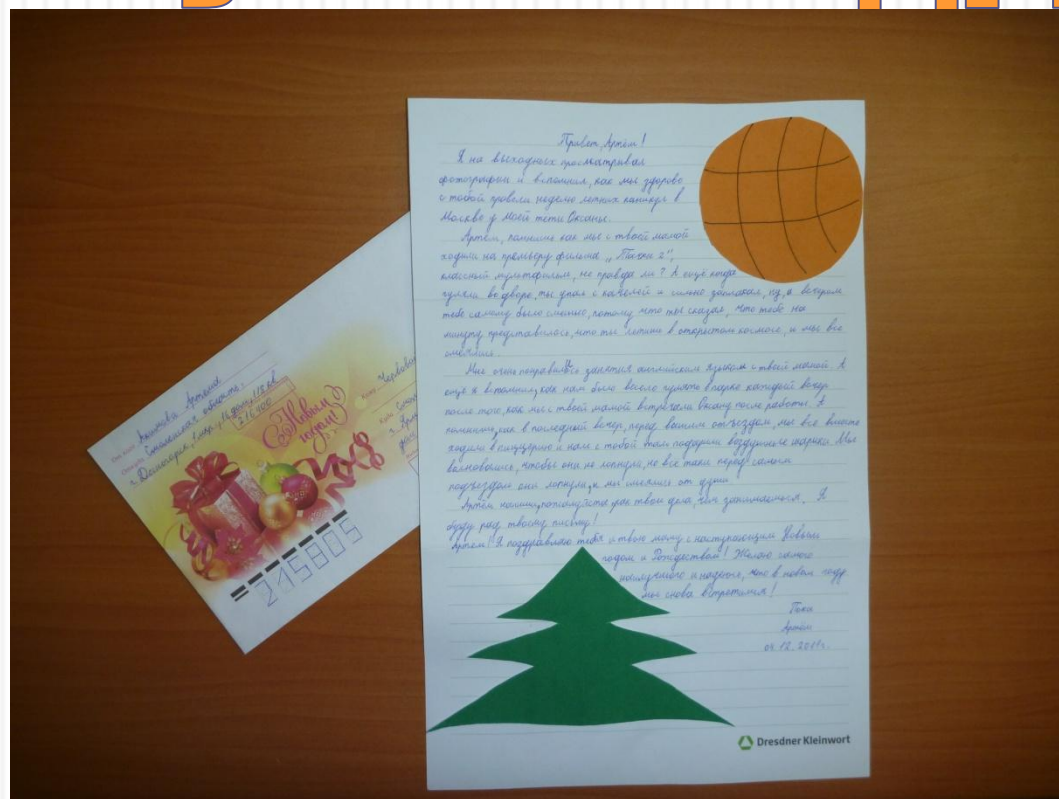 Привет, Артём!
Я на выходных просматривал
фотографии и вспомнил, как мы здорово
с тобой провели неделю летних каникул в
Москве у моей тети Оксаны.
Артём, помнишь как мы с твоей мамой
ходили на премьеру фильма „Тачки 2",
классный мультфильм, не правда ли? А ещё когда
гуляли во дворе, ты упал с качелей и сильно заплакал, ну, а вечером
тебе самому было смешно, потому что ты сказал, что тебе на
минуту представилось, что ты летишь в открытом космосе, и мы все
смеялись.
Мне очень понравились занятия английским языком с твоей мамой. А
ещё я вспомнил, как нам было весело гулять в парке каждый вечер
после того, как мы с твоей мамой встречали Оксану после работы. Я
помню, как в последний вечер, перед вашим отъездом, мы все вместе
ходили в пиццерию и нам с тобой там подарили воздушные шарики. Мы
волновались, чтобы они не лопнули, но всё таки перед самым
подъездом они лопнули, и мы смеялись от души.
Артём напиши, пожалуйста, как твои дела, чем занимаешься. Я
буду рад твоему письму!
Артём! Я поздравляю тебя и твою маму с наступающим Новым
годом и Рождеством! Желаю самого
наилучшего и надеюсь, что в новом году
мы снова встретимся!
Пока
Артём
12.2011г.
Dresdner Kleinwort
От кого Артёма
Откуда Смоленская область,
г. Десногорск, 2 мкр.,
216400
С Новым
годом!
Кому
Куда
215805